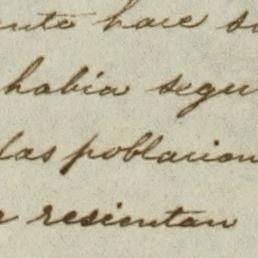 hace
habia segu
las poblacion
resientan